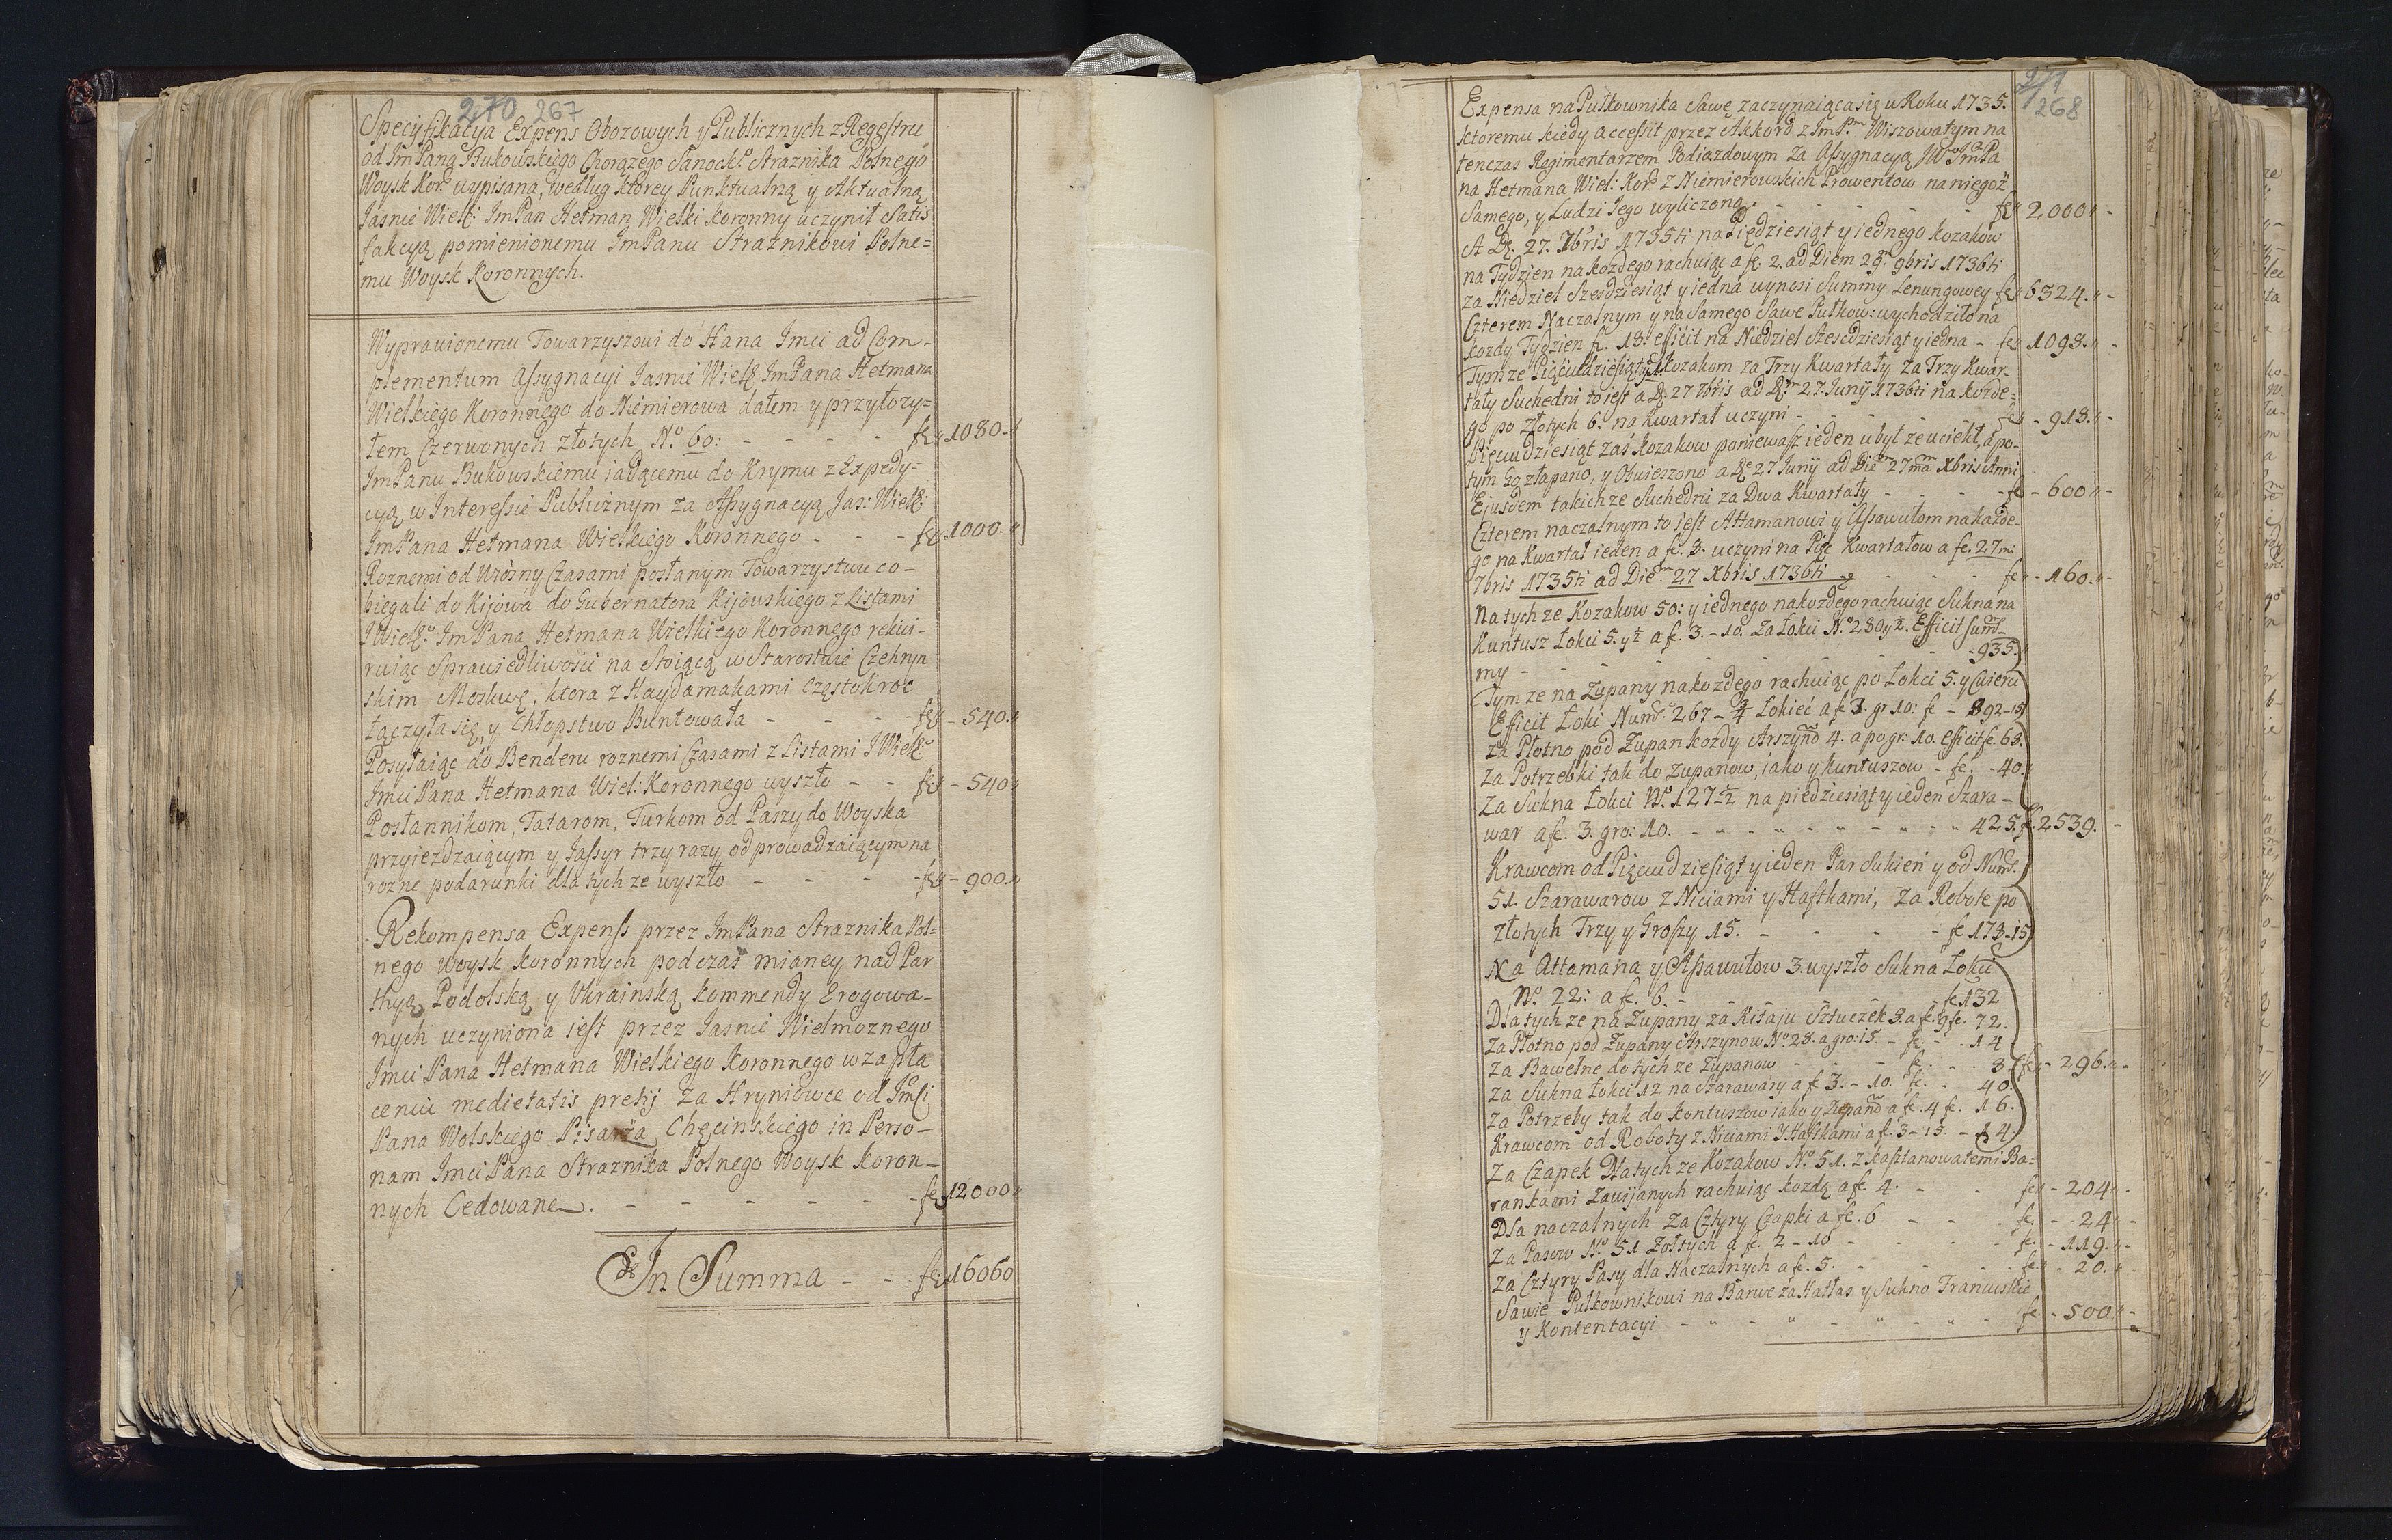 270 267
Specyfikacya Expens Obozowych y Publicznych z Regestru
od ImPana Bukowskiego Chorązego Sanock:º Straznika Polnego
Woysk Kor: wypisana, według ktorey Punktualną y Aktualną
Jasnie Wielk: ImPan Hetman Wielki Koronny uczynił Satis
fakcyą pomienionemu ImPanu Straznikowi Polne=
mu Woysk Koronnych.
Wyprawionemu Towarzyszowi do Hana Imci ad Com-
plementum Assygnacyi Jasnie Wielg ImPana Hetmana
Wielkiego Koronnego do Niemierowa dałem y przyłozy=
łem Czerwonych złotych Nº 60: - - - - fl 1080.
ImPanu Bukowskiemu iadącemu do Krymu z Expedy=
cyą w Interessie Publicznym za Assygnacyą Jas: Wielg:
ImPana Hetmana Wielkiego Koronnego - - - fl 1000.
Roznemi od Wiosny Czasami posłanym Towarzystwu co-
biegali do Kijowa do Gubernatora Kijowskiego z Listami
JWielgº ImPana Hetmana Wielkiego Koronnego rekwi-
ruiąc Sprawiedliwosci na Stoiącą w Starostwie Czehryn
skim Moskwę, ktora z Haydamakami częstokroc
łączyła się, y Chłopstwo Buntowała - - - fl - 540.
Posyłaiąc do Benderu roznemi Czasami z Listami JWielgº
Imci Pana Hetmana Wiel: Koronnego wyszło - - fl - 540
Posłannikom, Tatarom, Turkom od Paszy do Woyska
przyiezdzaiącym y Jassyr trzy razy odprowadzaiącym na
rozne podarunki dla tychze wyszło - - - fl - 900.
Rekompensa Expenss przez ImPana Straznika Pol=
nego woysk koronnych podczas mianey nad Par
thyą Podolską y Ukrainską kommendy Erogowa-
nych uczyniona iest przez Jasnie Wielmoznego
Imci Pana Hetmana Wielkiego Koronnego w zapła
ceniu medietatis pretij za Hryniowce od JmCi
Pana Wolskiego Pisarza Chęcinskiego in Perso-
nam Imci Pana Straznika Polnego Woysk Koron-
nych Cedowane. - - - - - - fl 12000
In Summa - - fl: 16060
271
268
Expensa na Pułkownika Sawę zaczynaiąca się w Roku 1735.
ktoremu kiedy accessit przez Akkord z ImPm Wiszowatym na
tenczas Regimentarzem Podiazdowym za Assygnacyą JWº ImPa
na Hetmana Wiel: Kor: z Niemierowskich Prowentow na niegoz
Samego, y Ludzi Jego wyliczono - - - - - fl 2000
A D. 27. 7bris 1735ti na Pięcdziesiąt y iednego kozakow
na Tydzien na kozdego rachuiąc a fl. 2. ad Diem 28m 9bris 1736ti
za Niedziel Szesdziesiąt y iedna wynosi Summy Lenungowey fl 6324.
Czterem Naczalnym y na Samego Sawę Pułkow: wychodziło na
kozdy Tydzien fl. 18. efficit na Niedziel Szescdziesiąt y iedna - fl 1098.
Tymze Pięciudziesiąt y 1 kozakom za Trzy Kwartały za Trzy Kwar-
tały Suchedni to iest a D. 27 7bris ad D:m 27 Junij 1736ti na kozde-
go po Złotych 6. na Kwartał uczyni - - - - fl - 918.
Pięciudziesiąt zas Kozakow poniewasz ieden ubył ze uciekł, a po-
tym Go złapano, y Obwieszono a De 27 Junij ad Diem 27ma Xbris Anni
Ejusdem takichze Suchedni za Dwa Kwartały - - - - fl - 600
Czterem naczalnym to iest Attamanowi y Assawułom na kazde-
go na Kwartał ieden a fl. 8. uczyni na Pięc Kwartałow a fl. 27mi
7bris 1735ti ad Diem 27 Xbris 1736ti - - - fl - 160.
Na tychze Kozakow 50: y iednego na kozdego rachuiąc Sukna na
Kuntusz Łokci 5. y ½ a fl. 3. - 10. za Łokci Nº 280 y ½. Efficit Sum-
my - - - - - - - - 935.
Tymze na Zupany na kozdego rachuiąc po Łokci 5. y Cwierci
Efficit Łokci Numº 267 - ¾ Łokiec a fl 3. gr 10: fl - 892-15
Za Płotno pod Zupan kozdy Arszynow 4. a po gr. 10. efficit fl. 68.
Za Potrzebki tak do Zupanow, iako y kuntuszow - fl. - 40.
Za Sukna Łokci Nº 127 ½ na piedziesiąt y ieden Szara-
war a fl. 3. gro: 10. - - - - - - 425. fl 2539.
Krawcom od Pięciudziesiąt y ieden Par Sukien y od Num:
51. Szarawarow z Niciami y Hastkami, za Robote po
złotych Trzy y Groszy 15. - - - - fl 178-15
Na Attamana y Assawułow 3. wyszło Sukna Łokci
Nº 22: a fl. 6. - - - - fl 132
Dla tychze na Zupany za Kitaju Sztuczek 8. a fl. 9 fl. 72.
Za Płotno pod Zupany Arszynow Nº 28. a gro: 15. - fl. - 14
Za Bawełne do tychze Zupanow - - - fl. - 8. fl - 296.
Za Sukna Łokci 12 na Szarawary a fl 3. - 10. fl. - 40.
Za Potrzeby tak do Kontuszow iako y Zupanow a fl. 4 fl. 16.
Krawcom od Roboty z Niciami y Hastkami a fl. 3-15 - 14.
Za Czapek Dla tychze Kozakow Nº 51. z kasztanowatemi Ba-
rankami Zawijanych rachuiąc kozdą a fl. 4. - - fl - 204
Dla naczalnych Za Cztyry Czapki a fl. 6 - - - fl. - 24
Za Pasow Nº 51 Zołtych a fl. 2 - 10 - - - fl. - 119.
Za Cztyry Pasy dla Naczalnych a fl. 5. - - - fl - 20.
Sawie Pułkownikowi na Barwe za Hatłas y Sukno Francuskie
y Kontentacyi - - - - - - - fl. - 500